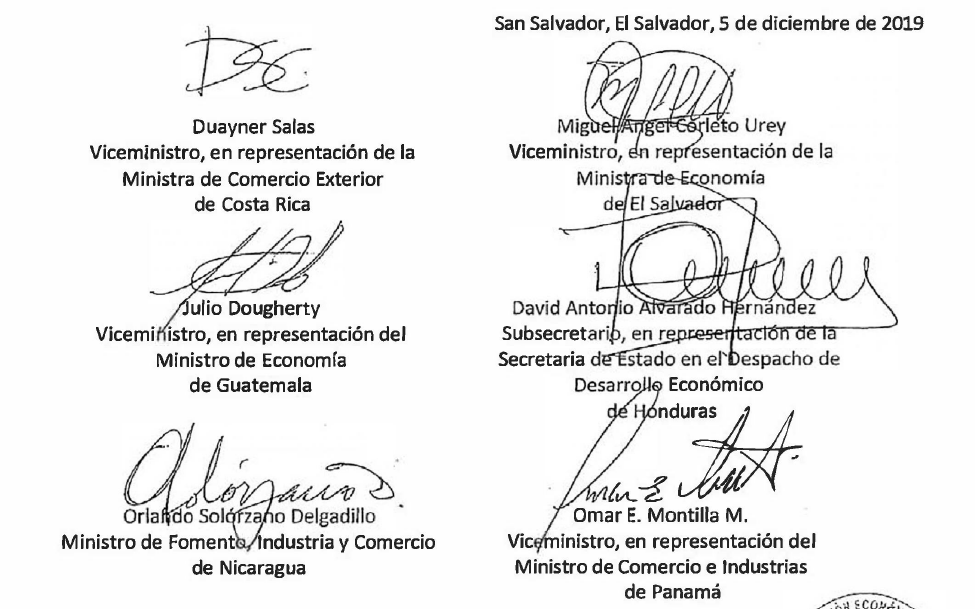 San Salvador, El Salvador, 5 de diciembre de 2019
Duayner Salas
Viceministro, en representación de la
Ministra de Comercio Exterior
de Costa Rica
Miguel Ángel Corleto Urey
Viceministro, en representación de la
Ministra de Economía
de El Salvador
Julio Dougherty
Viceministro, en representación del
Ministro de Economía
de Guatemala
David Antonio Alvarado Hernández
Subsecretario, en representación de la
Secretaria de Estado en el Despacho de
Desarrollo Económico
de Honduras
Orlando Solórzano Delgadillo
Ministro de Fomento, Industria y Comercio
de Nicaragua
Omar E. Montilla M.
Viceministro, en representación del
Ministro de Comercio e Industrias
de Panamá